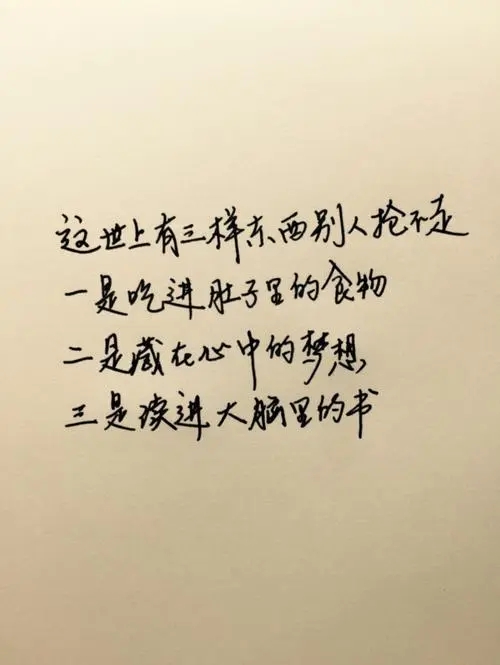 这世上有三样东西别人抢不走
一是吃进肚子里的食物
二是藏在心中的梦想
三是读进大脑里的书